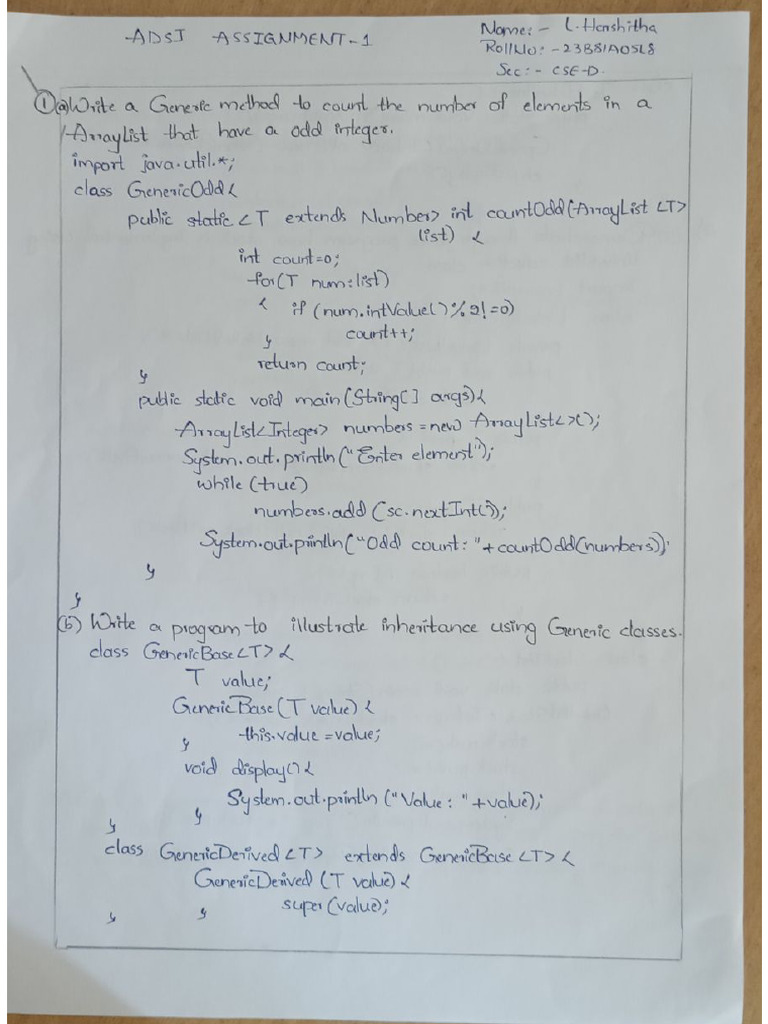 ADSJ ASSIGNMENT-1
Name:- L. Harshitha
RollNo:- 23B81A05L8
Sec:- CSE-D.
① (a) Write a Generic method to count the number of elements in a
ArrayList that have a odd integer.
import java.util.*;
class GenericOdd{
public static <T extends Number> int countOdd(ArrayList <T>
list) {
int count=0;
for(T num:list)
{ if (num.intValue()%2!=0)
count++;
}
return count;
}
public static void main(String[] args){
ArrayList<Integer> numbers=new ArrayList<>();
System.out.println("Enter element");
while (true)
numbers.add(sc.nextInt());
System.out.println("Odd count: "+countOdd(numbers));
}
}
(b) Write a program to illustrate inheritance using Generic classes.
class GenericBase<T> {
T value;
GenericBase(T value) {
this.value=value;
}
void display(){
System.out.println("Value: "+value);
} }
class GenericDerived<T> extends GenericBase<T> {
GenericDerived (T value) {
super(value);
} }